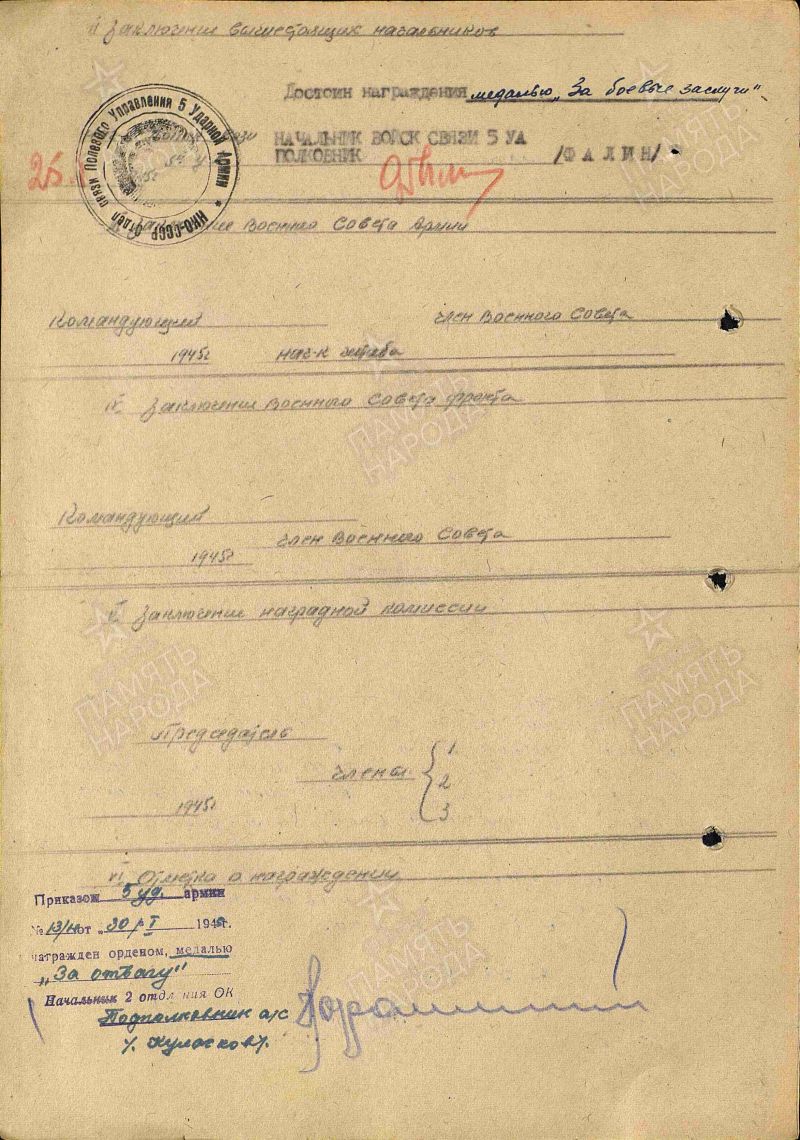 II Заключение вышестоящих начальников
Достоин награждения медалью „За боевые заслуги"
НАЧАЛЬНИК ВОЙСК СВЯЗИ 5 УА
ПОЛКОВНИК /ФАЛИН/
НКО-СССР Отдел связи Полевого Управления 5 Ударной Армии
25
Военного Совета Армии
Командующий член Военного Совета
1945г нач-к штаба
IV Заключение Военного Совета фронта
Командующий
член Военного Совета
1945г
V Заключение наградной комиссии
Председатель
Члены { 1
2
3
1945г
VI Отметка о награждении
Приказом 5 уд. армии
№ 13/н от „30" I 1945г.
награжден орденом, медалью
„За отвагу"
Начальник 2 отделения ОК
Подполковник а/с
ПАМЯТЬ НАРОДА
ПАМЯТЬ НАРОДА
ПАМЯТЬ НАРОДА
ПАМЯТЬ НАРОДА
ПАМЯТЬ НАРОДА